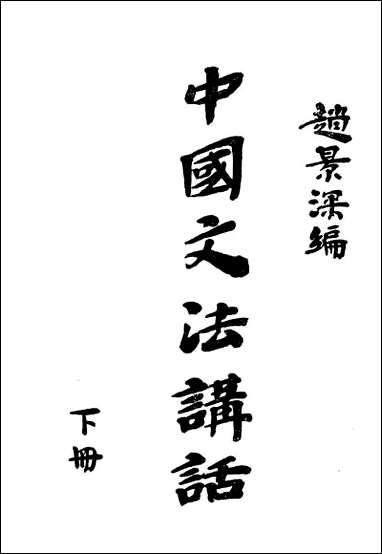 趙景深編
中國文法講話
下冊